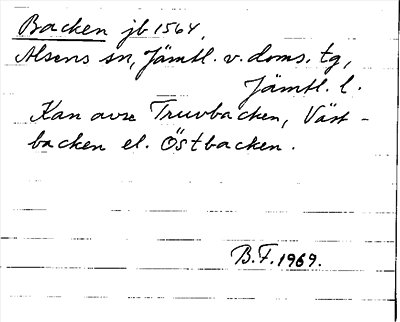 Backen jb 1564,
Alsens sn, Jämtl. v. doms. tg,
Jämtl. l.
Kan avse Truvbacken, Väst-
backen el. Östbacken.
B.F. 1969.